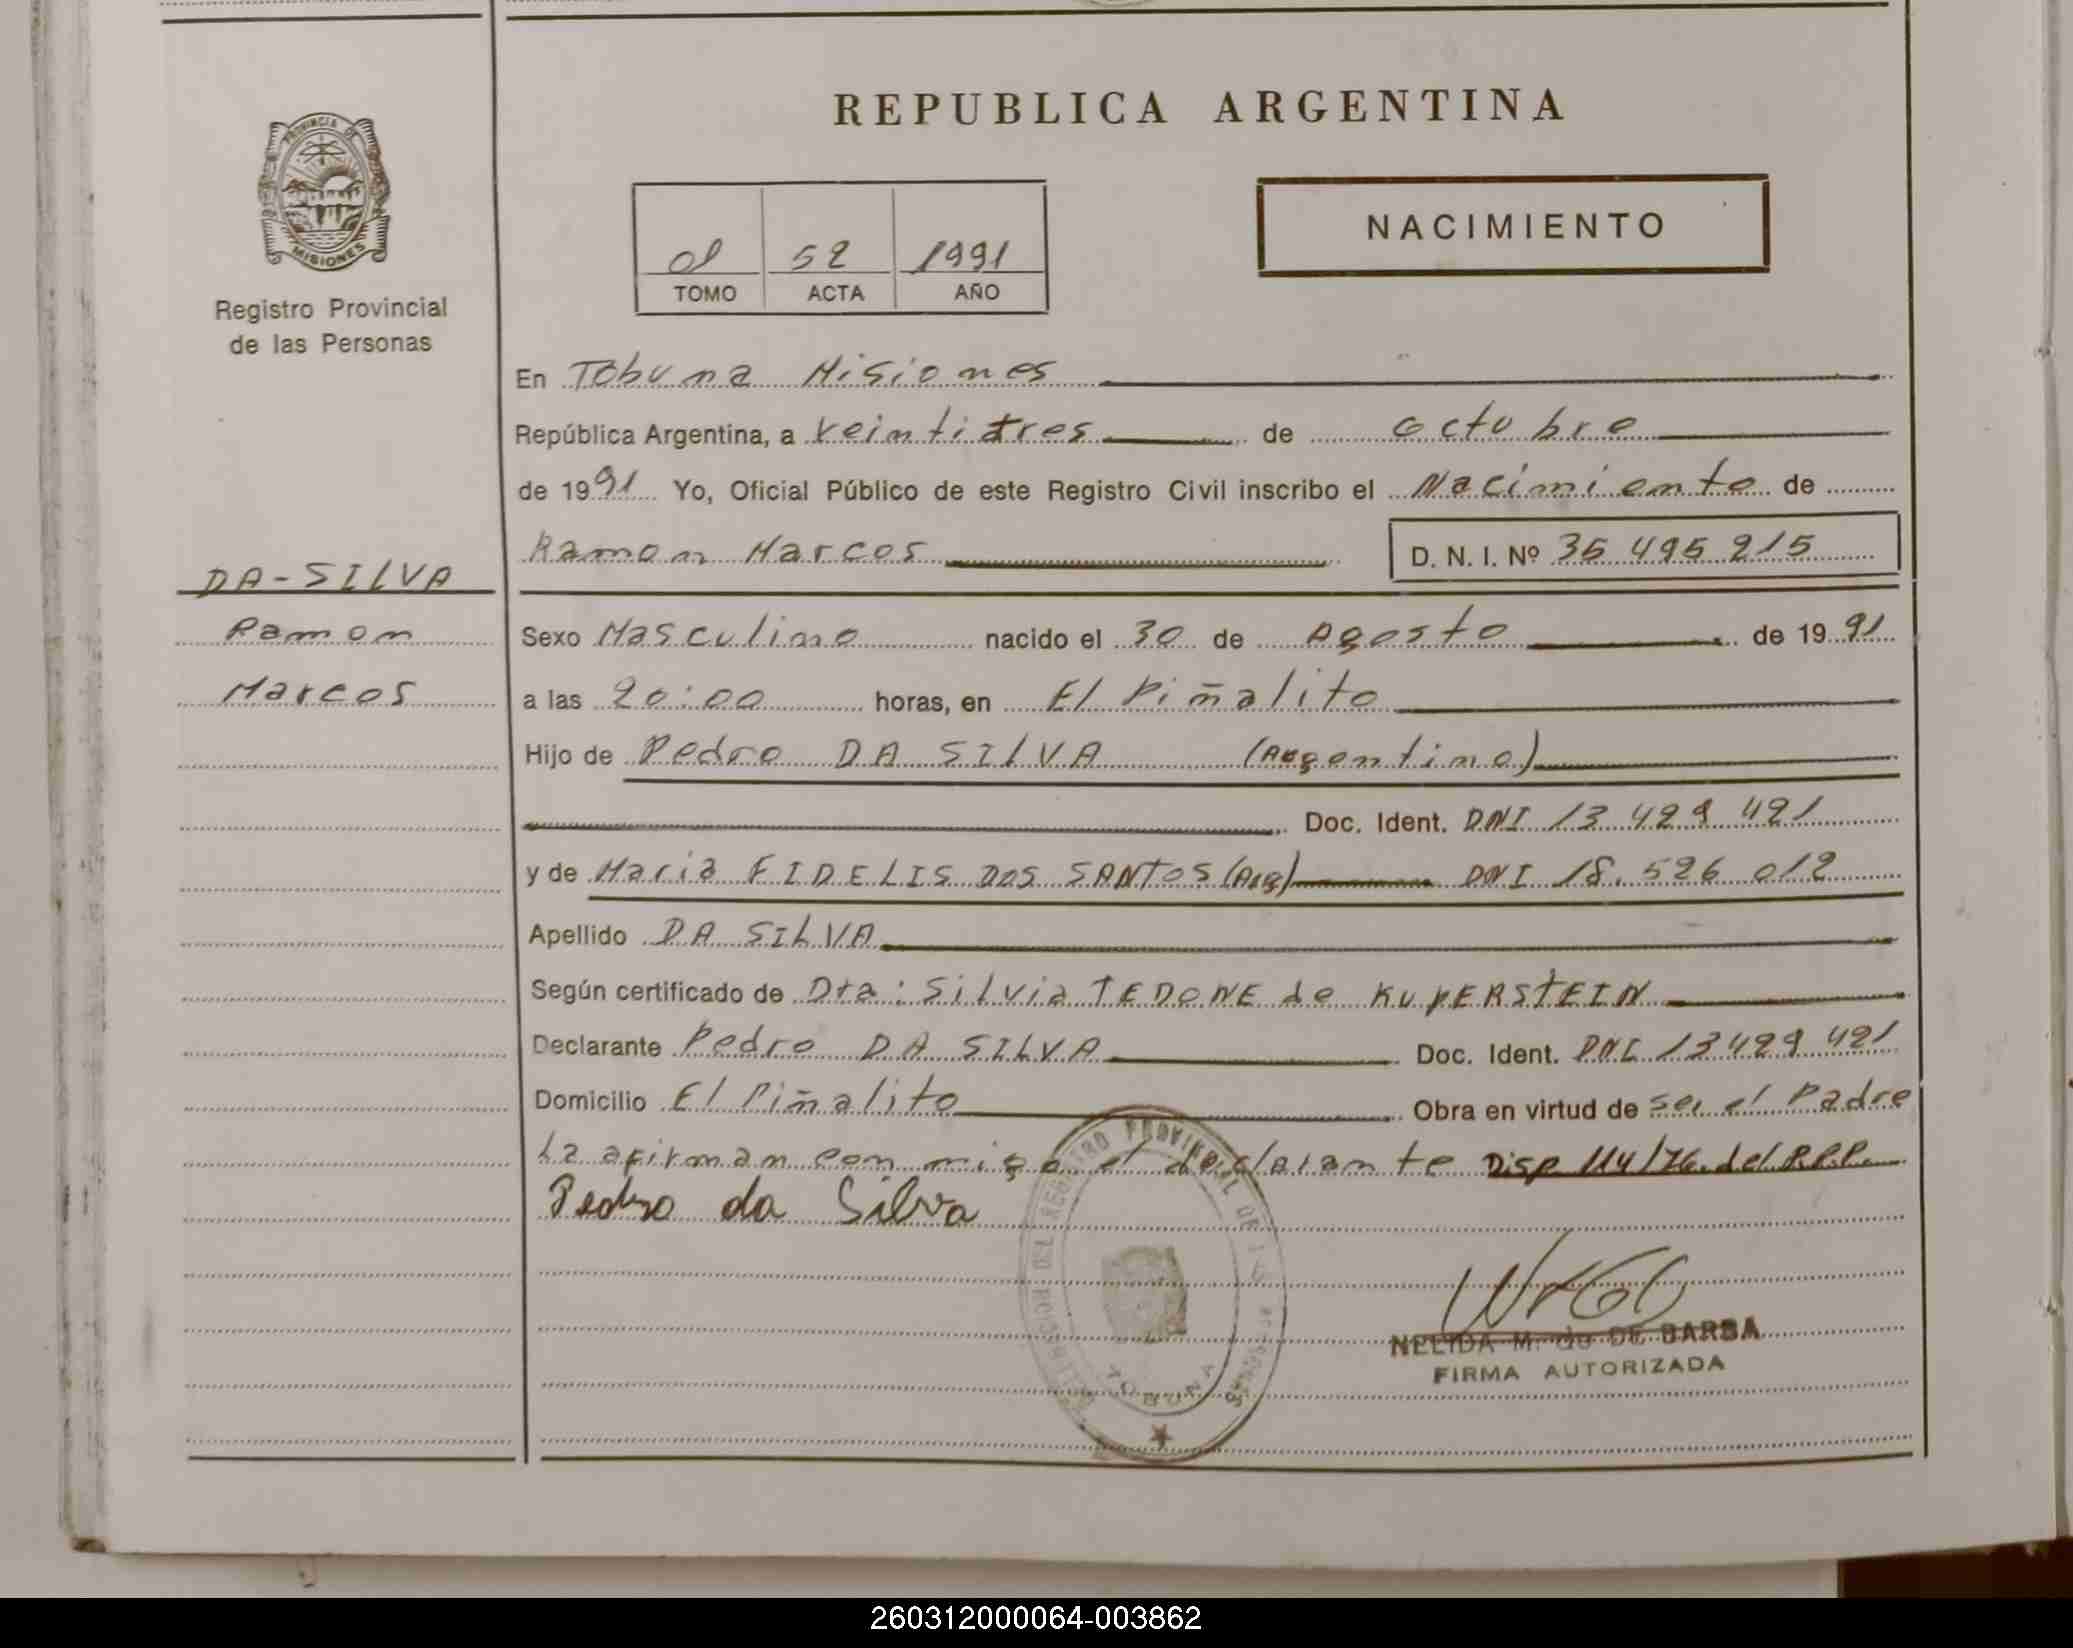 REPUBLICA ARGENTINA
PROVINCIA DE
MISIONES
Registro Provincial
de las Personas
NACIMIENTO
01 52 1991
TOMO ACTA AÑO
En Tobuna Misiones
República Argentina, a veintitres de octubre
de 1991 Yo, Oficial Público de este Registro Civil inscribo el Nacimiento de
Ramon Marcos D. N. I. Nº 35 495 215
DA-SILVA
Ramon
Marcos
Sexo Masculino nacido el 30 de Agosto de 1991
a las 20:00 horas, en El Piñalito
Hijo de Pedro DA SILVA (Argentino)
Doc. Ident. DNI 13 429 421
y de Maria FIDELIS DOS SANTOS (Arg) DNI 18.526 012
Apellido DA SILVA
Según certificado de Dra: Silvia TEDONE de KUPERSTEIN
Declarante Pedro DA SILVA Doc. Ident. DNI 13 429 421
Domicilio El Piñalito Obra en virtud de ser el Padre
La afirman con migo el declarante Disp 114/76. del R.P.P.
Pedro da Silva
DEL REGISTRO PROVINCIAL DE LAS PERSONAS
TOBUNA
NELIDA M. DE BARBA
FIRMA AUTORIZADA
260312000064-003862